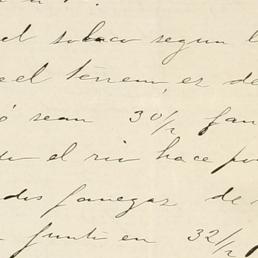 el sobaco segun l
el terreno, es de
ó sean 30 1/2 fan
el rio hace po
dos fanegas de
junto en 32 1/2